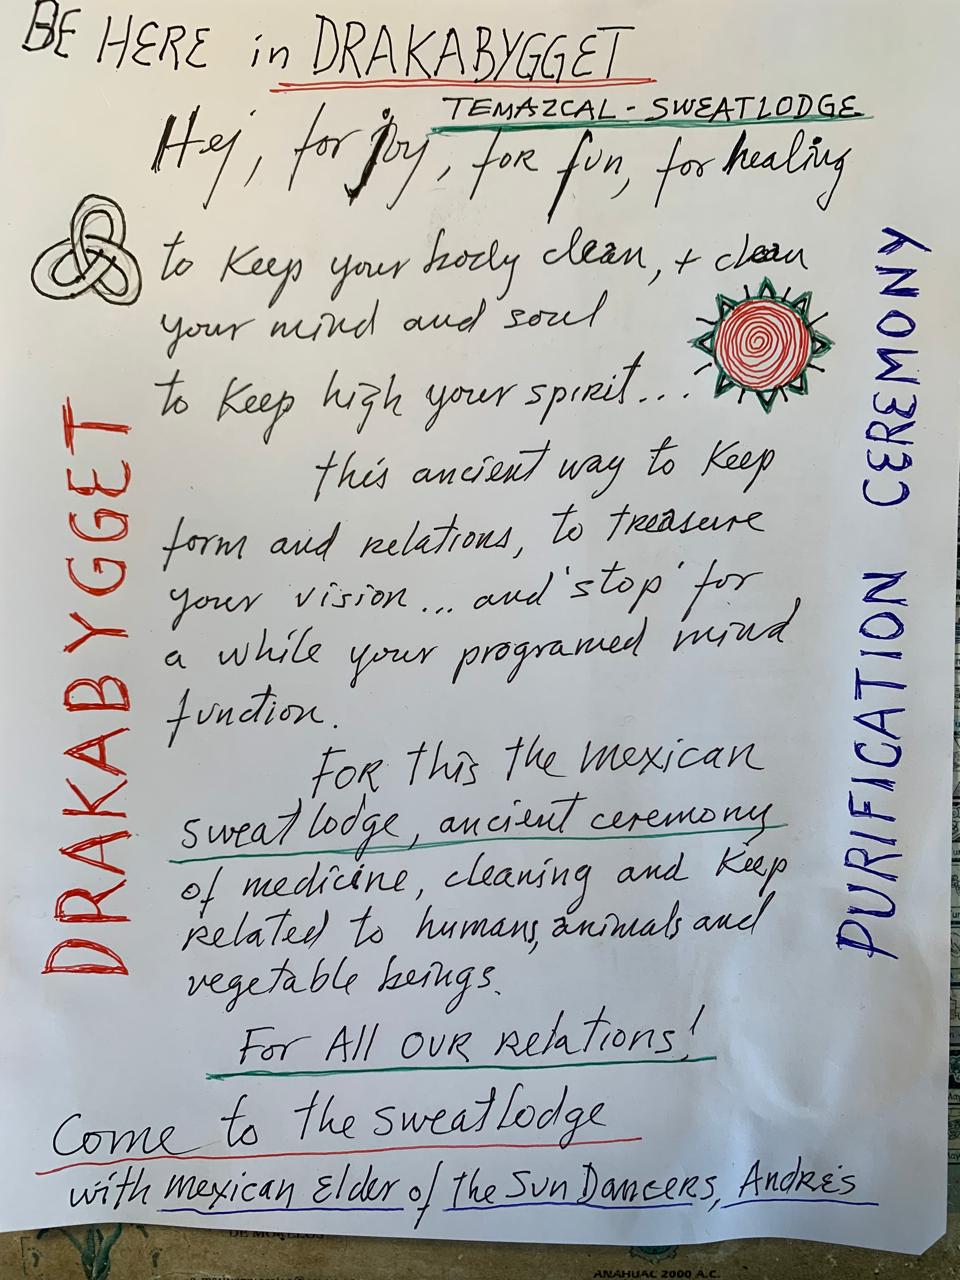 BE HERE in DRAKABYGGET
TEMAZCAL - SWEATLODGE
Hej, for joy, for fun, for healing
to keep your body clean, + clean
your mind and soul
to keep high your spirit...
this ancient way to keep
form and relations, to treasure
your vision... and 'stop' for
a while your programed mind
function.
For this the mexican
sweatlodge, ancient ceremony
of medicine, cleaning and keep
related to humans, animals and
vegetable beings.
For All our relations!
Come to the sweatlodge
with mexican Elder of the Sun Dancers, Andrés
DRAKABYGGET
PURIFICATION CEREMONY
DE MORELOS
ANAHUAC 2000 A.C.